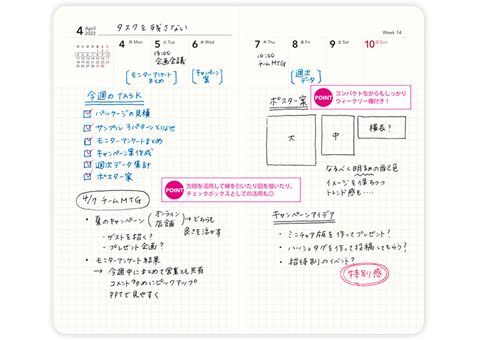 4 April
2022
タスクを残さない
Week 14
4 月 Mon
5 火 Tue
6 水 Wed
7 木 Thu
8 金 Fri
9 土 Sat
10 日 Sun
13:00
企画会議
10:00
チームMTG
モニターアンケート
まとめ
キャンペーン
案
週次
データ
今週のTASK
パッケージの見積
サンプル 3パターンとりよせ
モニターアンケートまとめ
キャンペーン案作成
週次データ集計
ポスター案
POINT
方眼を活用して線を引いたり図を描いたり。
チェックボックスとしての活用も◎
4/7 チームMTG
・夏のキャンペーン (オンライン
店舗) → どちらも
良さを活かす
- ゲストを招く?
- プレゼント企画?
・モニターアンケート結果
→ 今週中にまとめて営業にも共有
コメント多めにピックアップ
PPTで見やすく
POINT
コンパクトながらもしっかり
ウィークリー欄付き!
ポスター案
大
中
横長?
なるべく明るめの配色
イメージを保ちつつ
トレンド感も‥‥
キャンペーンアイデア
・ミニチュア版を作ってプレゼント?
・ハッシュタグを作って投稿してもらう?
・招待制のイベント?
特別感